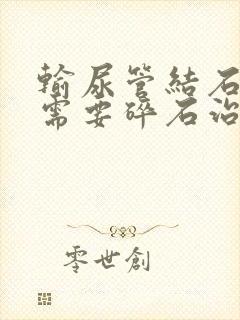 輸尿管結石
需要碎石治
零世創